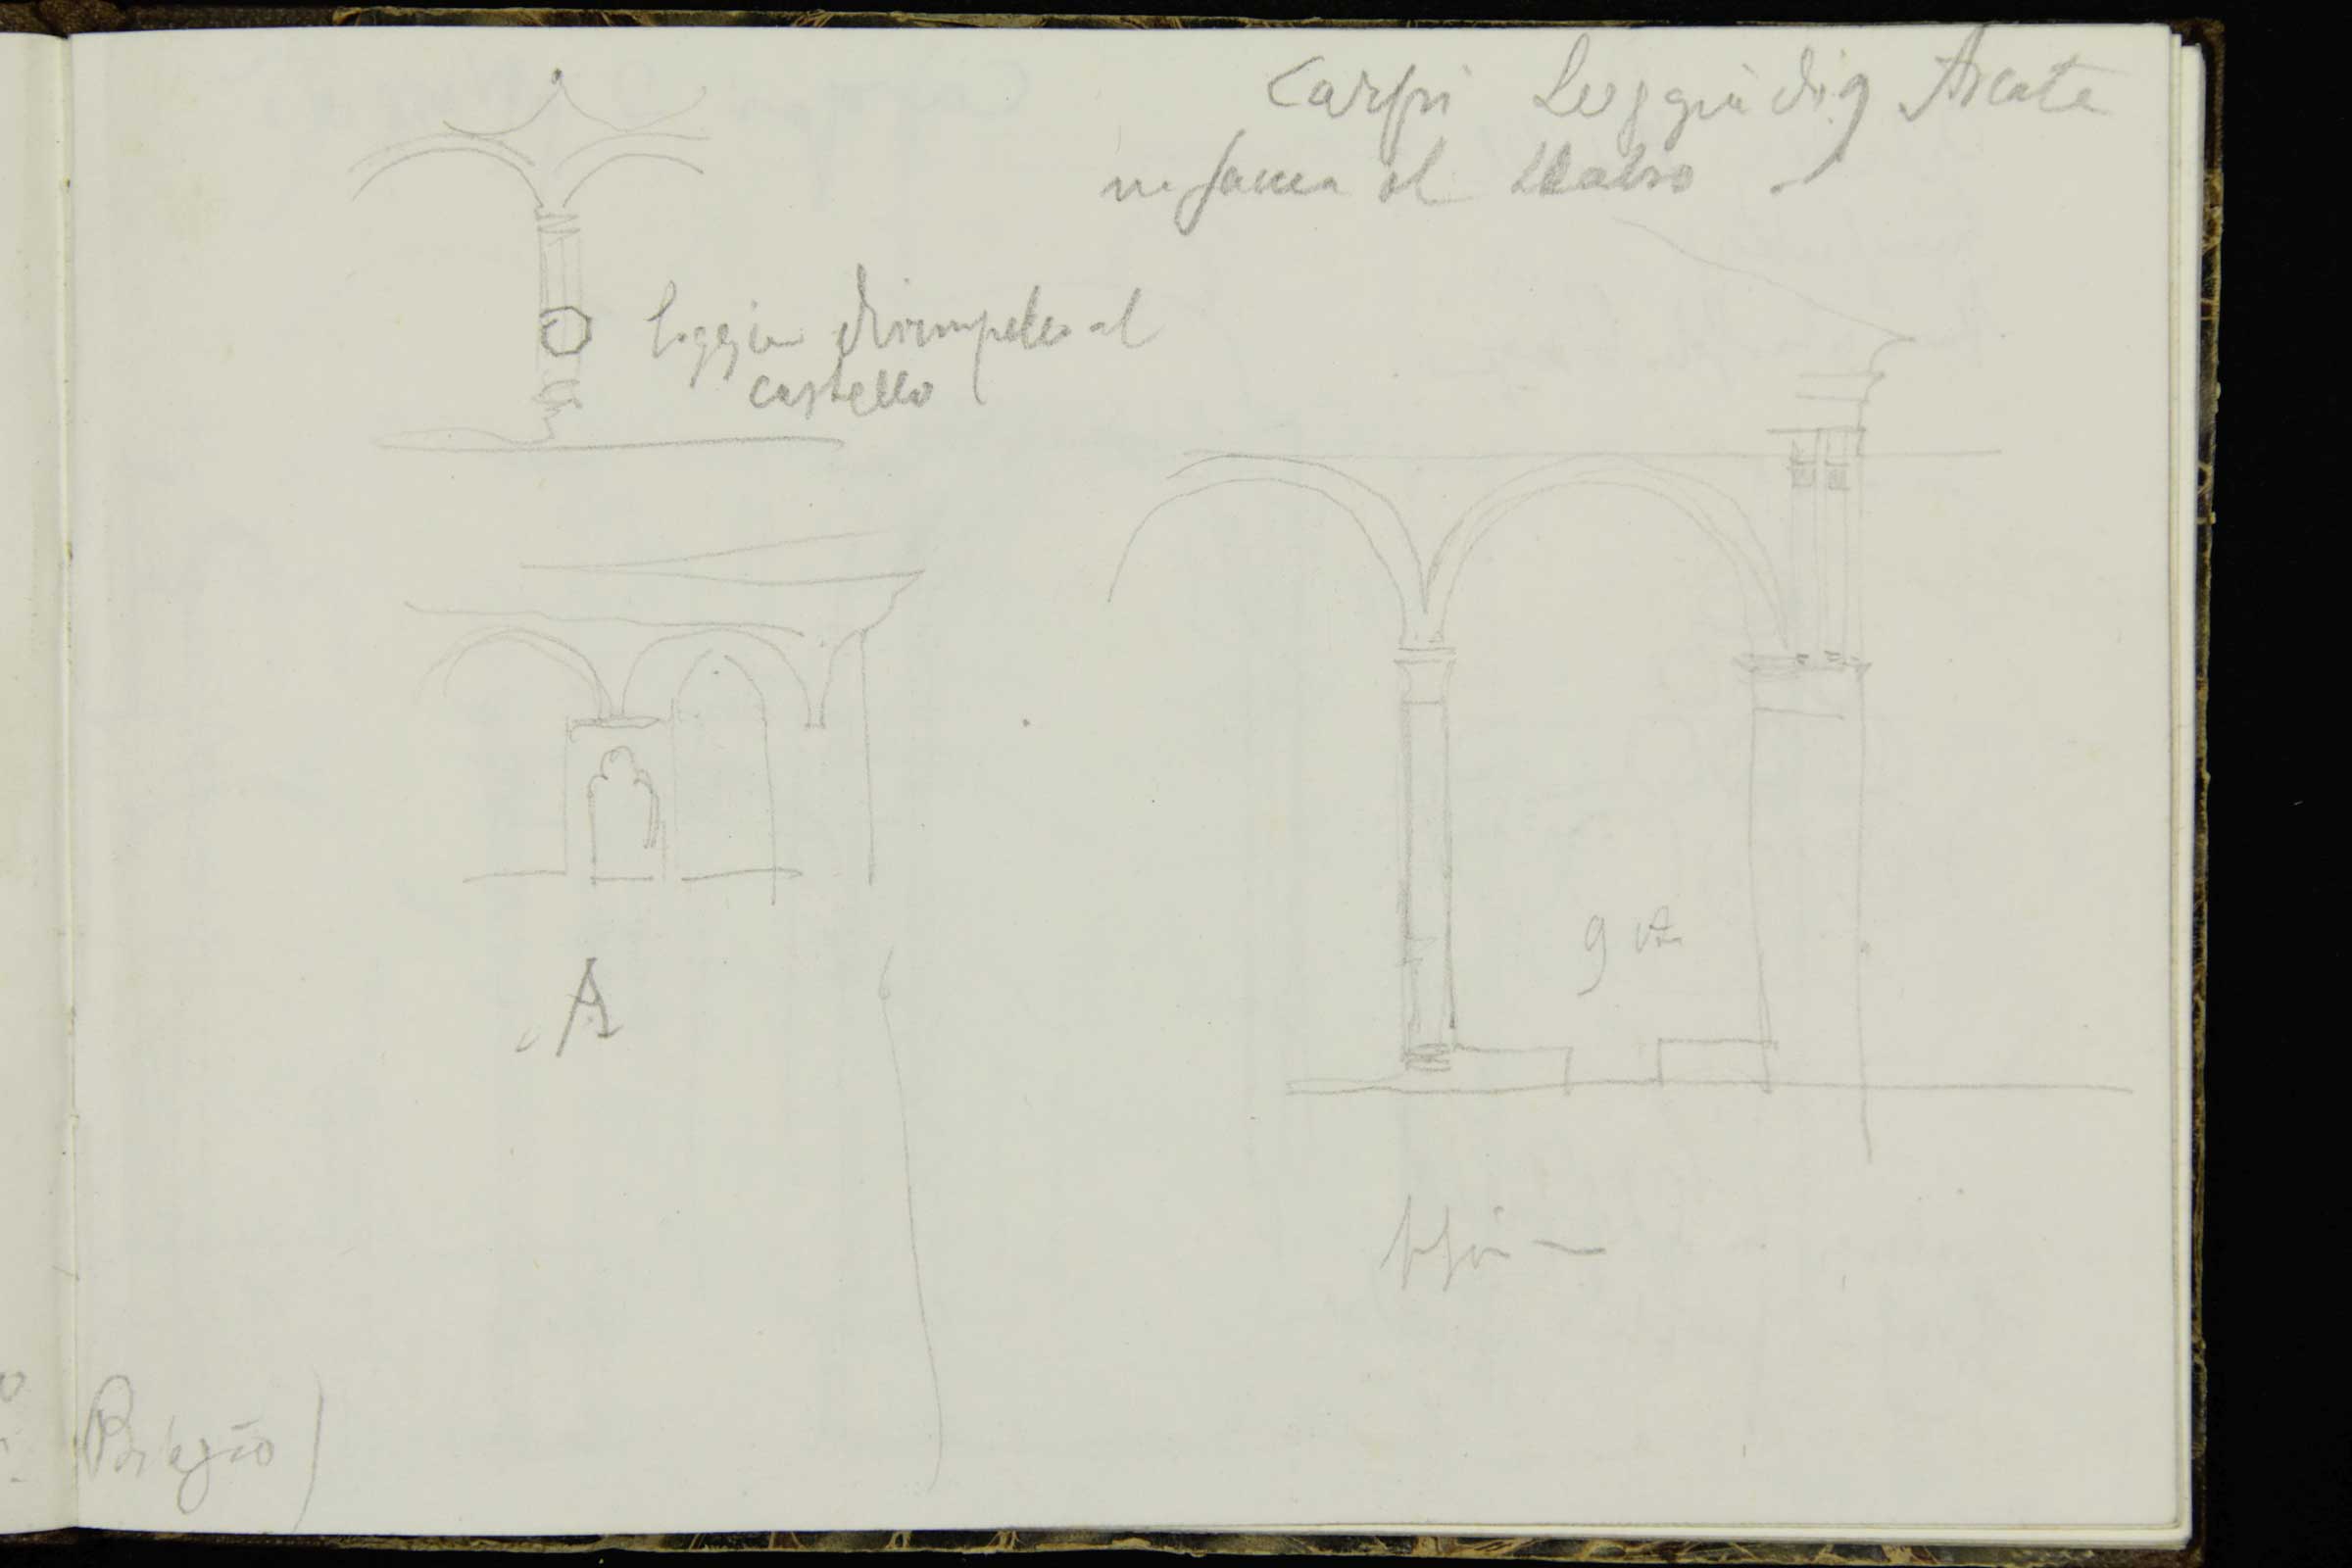 Carpi Loggia di 9 Arcate
in faccia al teatro
loggia dirimpetto al
castello
A
9
Biagio)